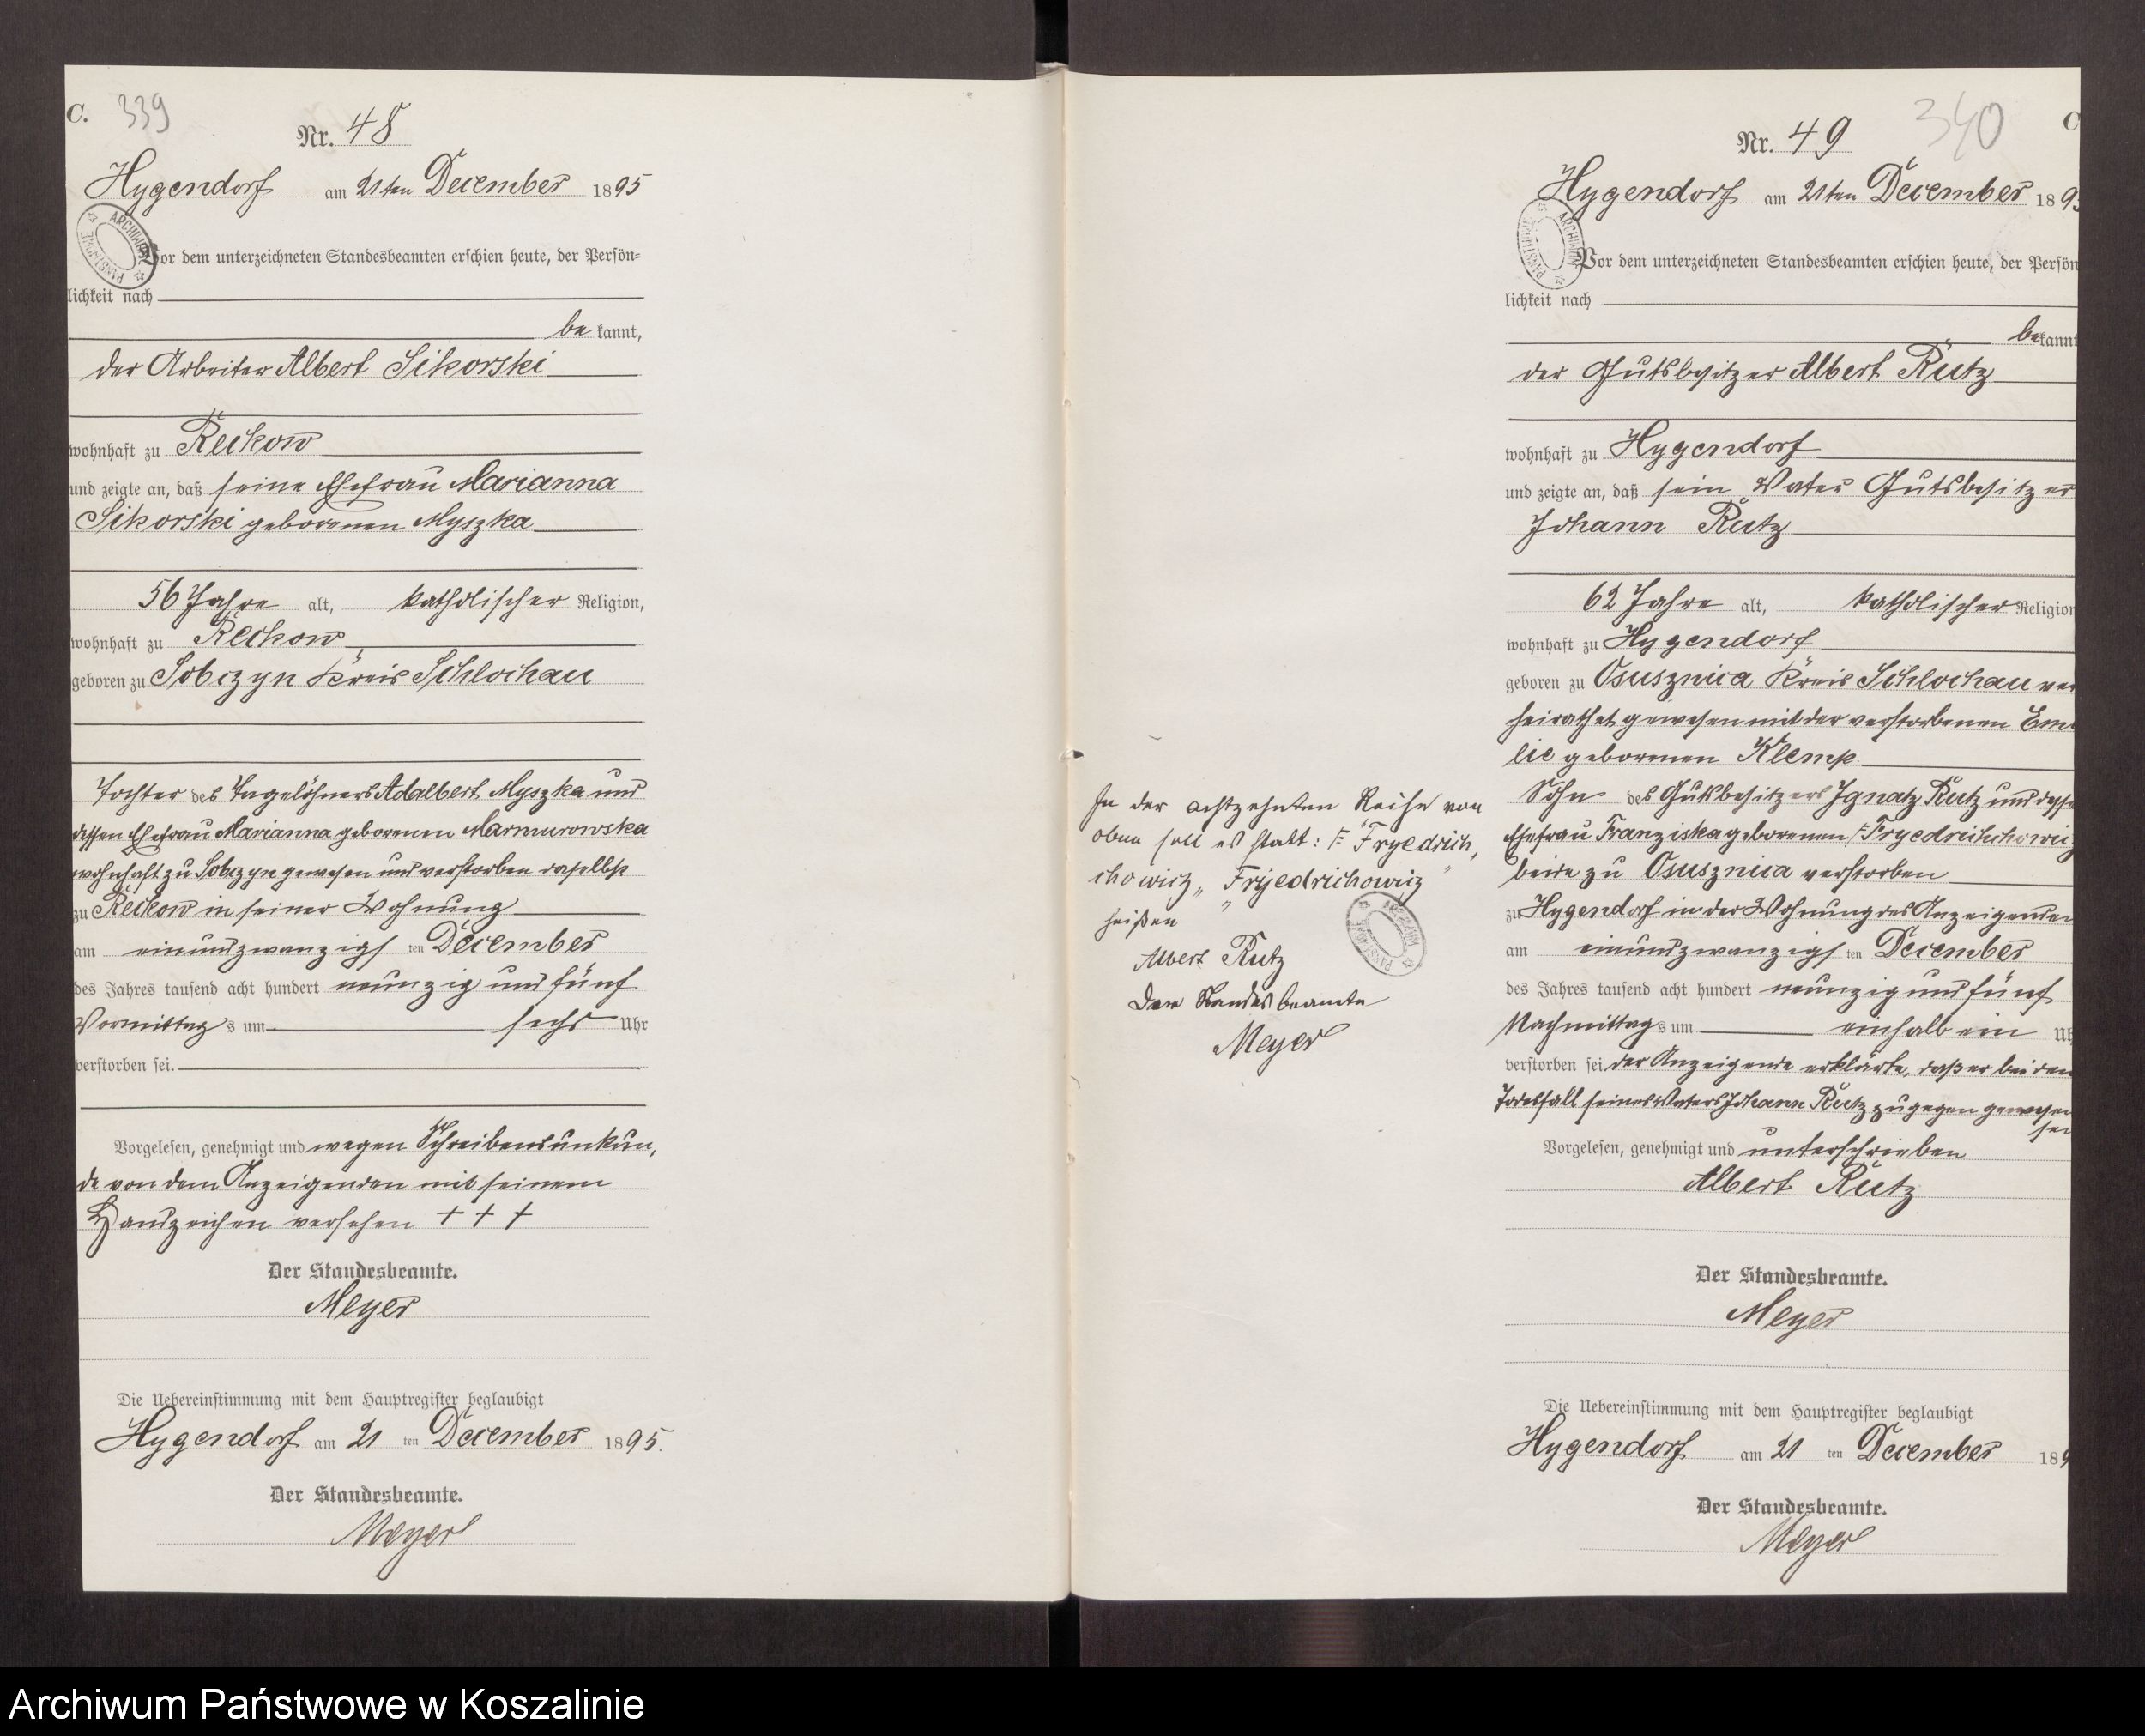 C. 339
Nr. 48
Hygendorf am 21ten December 1895
ARCHIWUM PAŃSTWOWE
Vor dem unterzeichneten Standesbeamten erschien heute, der Persön-
lichkeit nach
be kannt,
der Arbeiter Albert Sikorski
wohnhaft zu Reckow
und zeigte an, daß seine Ehefrau Marianna
Sikorski geborenen Myszka
56 Jahre alt, katholischer Religion,
wohnhaft zu Reckow
geboren zu Sobczyn Kreis Schlochau
Tochter des Tagelöhners Adalbert Myszka und
dessen Ehefrau Marianna geborenen Marmurowska
wohnhaft zu Sobczyn gewesen und verstorben daselbst
zu Reckow in seiner Wohnung
am einundzwanzigs ten December
des Jahres tausend acht hundert neunzig und fünf
Vormittags um sechs Uhr
verstorben sei.
Vorgelesen, genehmigt und wegen Schreibensunkun,
de von dem Anzeigenden mit seinem
Handzeichen versehen + + +
Der Standesbeamte.
Meyer
Die Uebereinstimmung mit dem Hauptregister beglaubigt
Hygendorf am 21 ten December 1895.
Der Standesbeamte.
Meyer
In der achtzehnten Reihe von
oben soll es statt: F "Fryedrich,
chowicz" "Frijedrichowicz"
heißen
Albert Rutz
Der Standesbeamte
Meyer
ARCHIWUM PAŃSTWOWE
340 C
Nr. 49
Hygendorf am 21ten December 189
ARCHIWUM PAŃSTWOWE
Vor dem unterzeichneten Standesbeamten erschien heute, der Persön
lichkeit nach
bekannt
der Gutsbesitzer Albert Rutz
wohnhaft zu Hygendorf
und zeigte an, daß sein Vater Gutsbesitzer
Johann Rutz
62 Jahre alt, katholischer Religion
wohnhaft zu Hygendorf
geboren zu Osusznica Kreis Schlochau ver
heirathet gewesen mit der verstorbenen Emi
lie geborenen Klemp
Sohn des Gutsbesitzers Ignatz Rutz und dessen
Ehefrau Franziska geborenen F Fryedrichchowicz
beide zu Osusznica verstorben
zu Hygendorf in der Wohnung des Anzeigenden
am einundzwanzigs ten December
des Jahres tausend acht hundert neunzig und fünf
Nachmittags um einhalb ein Uh
verstorben sei der Anzeigende erklärte, daß er bei dem
Todesfall seines Vaters Johann Rutz zugegen gewesen
sei
Vorgelesen, genehmigt und unterschrieben
Albert Rutz
Der Standesbeamte.
Meyer
Die Uebereinstimmung mit dem Hauptregister beglaubigt
Hygendorf am 21 ten December 189
Der Standesbeamte.
Meyer
Archiwum Państwowe w Koszalinie